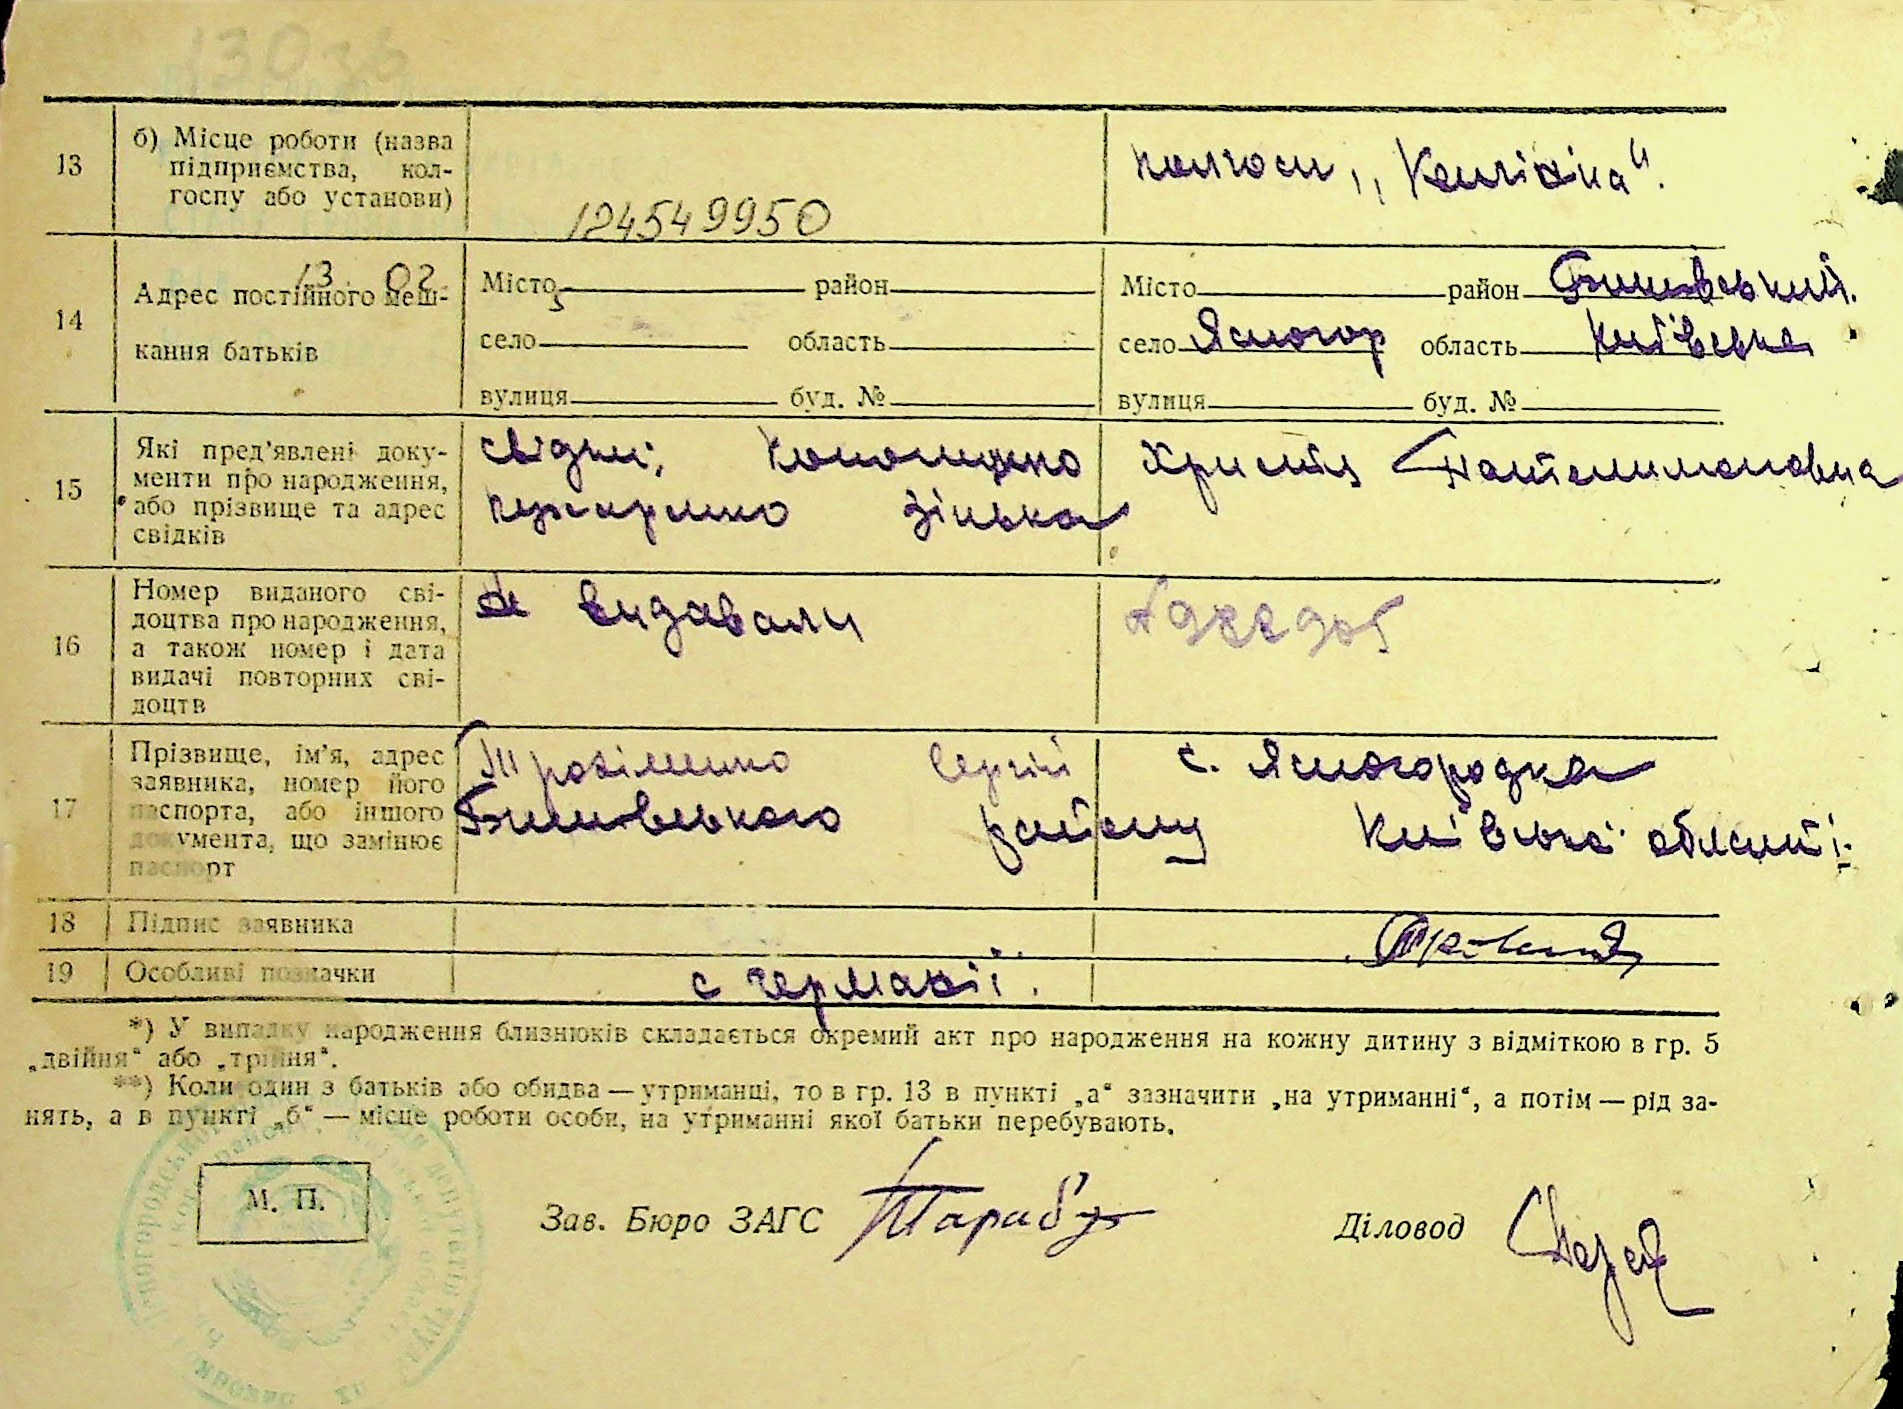 13036
13 б) Місце роботи (назва
підприємства, кол-
госпу або установи)
124549950
колгосп
13 02
14 Адрес постійного меш-
кання батьків
Місто район
село область
вулиця буд. №
Місто район Бишівський.
село Ясногор область Київська
вулиця буд. №
15 Які пред'явлені доку-
менти про народження,
або прізвище та адрес
свідків
свідки; Кононенко Христя Пантелимоновна
Зінька
16 Номер виданого сві-
доцтва про народження,
а також номер і дата
видачі повторних сві-
доцтв
не видавали
17 Прізвище, ім'я, адрес
заявника, номер його
паспорта, або іншого
документа, що замінює
паспорт
Сергій с. Ясногородка
Бишівського району Київської області.
18 Підпис заявника
19 Особливі позначки
с германії.
*) У випадку народження близнюків складається окремий акт про народження на кожну дитину з відміткою в гр. 5
„двійня“ або „трійня“.
**) Коли один з батьків або обидва — утриманці, то в гр. 13 в пункті „а“ зазначити „на утриманні“, а потім — рід за-
нять, а в пункті „б“ — місце роботи особи, на утриманні якої батьки перебувають.
М. П.
Зав. Бюро ЗАГС
Діловод